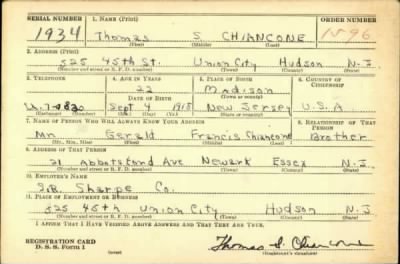 SERIAL NUMBER 1. NAME (Print) ORDER NUMBER
1934 Thomas S. CHIANCONE
(First) (Middle) (Last)
2. ADDRESS (Print)
525 45th St. Union City Hudson N.J.
(Number and street or R. F. D. number) (Town) (County) (State)
3. TELEPHONE 4. AGE IN YEARS 5. PLACE OF BIRTH 6. COUNTRY OF CITIZENSHIP
22 Madison
DATE OF BIRTH (Town or county)
Sept 4 1918 New Jersey U.S.A
(Mo.) (Day) (Yr.) (State or country)
7. NAME OF PERSON WHO WILL ALWAYS KNOW YOUR ADDRESS 8. RELATIONSHIP OF THAT PERSON
Mr. Gerald Francis Chiancone Brother
(Mr., Mrs., Miss) (First) (Middle) (Last)
9. ADDRESS OF THAT PERSON
21 Abbotsford Ave Newark Essex N.J
(Number and street or R. F. D. number) (Town) (County) (State)
10. EMPLOYER'S NAME
Sharpe Co.
11. PLACE OF EMPLOYMENT OR BUSINESS
525 45th Union City Hudson N.J
(Number and street or R. F. D. number) (Town) (County) (State)
I AFFIRM THAT I HAVE VERIFIED ABOVE ANSWERS AND THAT THEY ARE TRUE.
REGISTRATION CARD
D. S. S. Form 1 (over) Thomas S. Chiancone
(Registrant's signature)